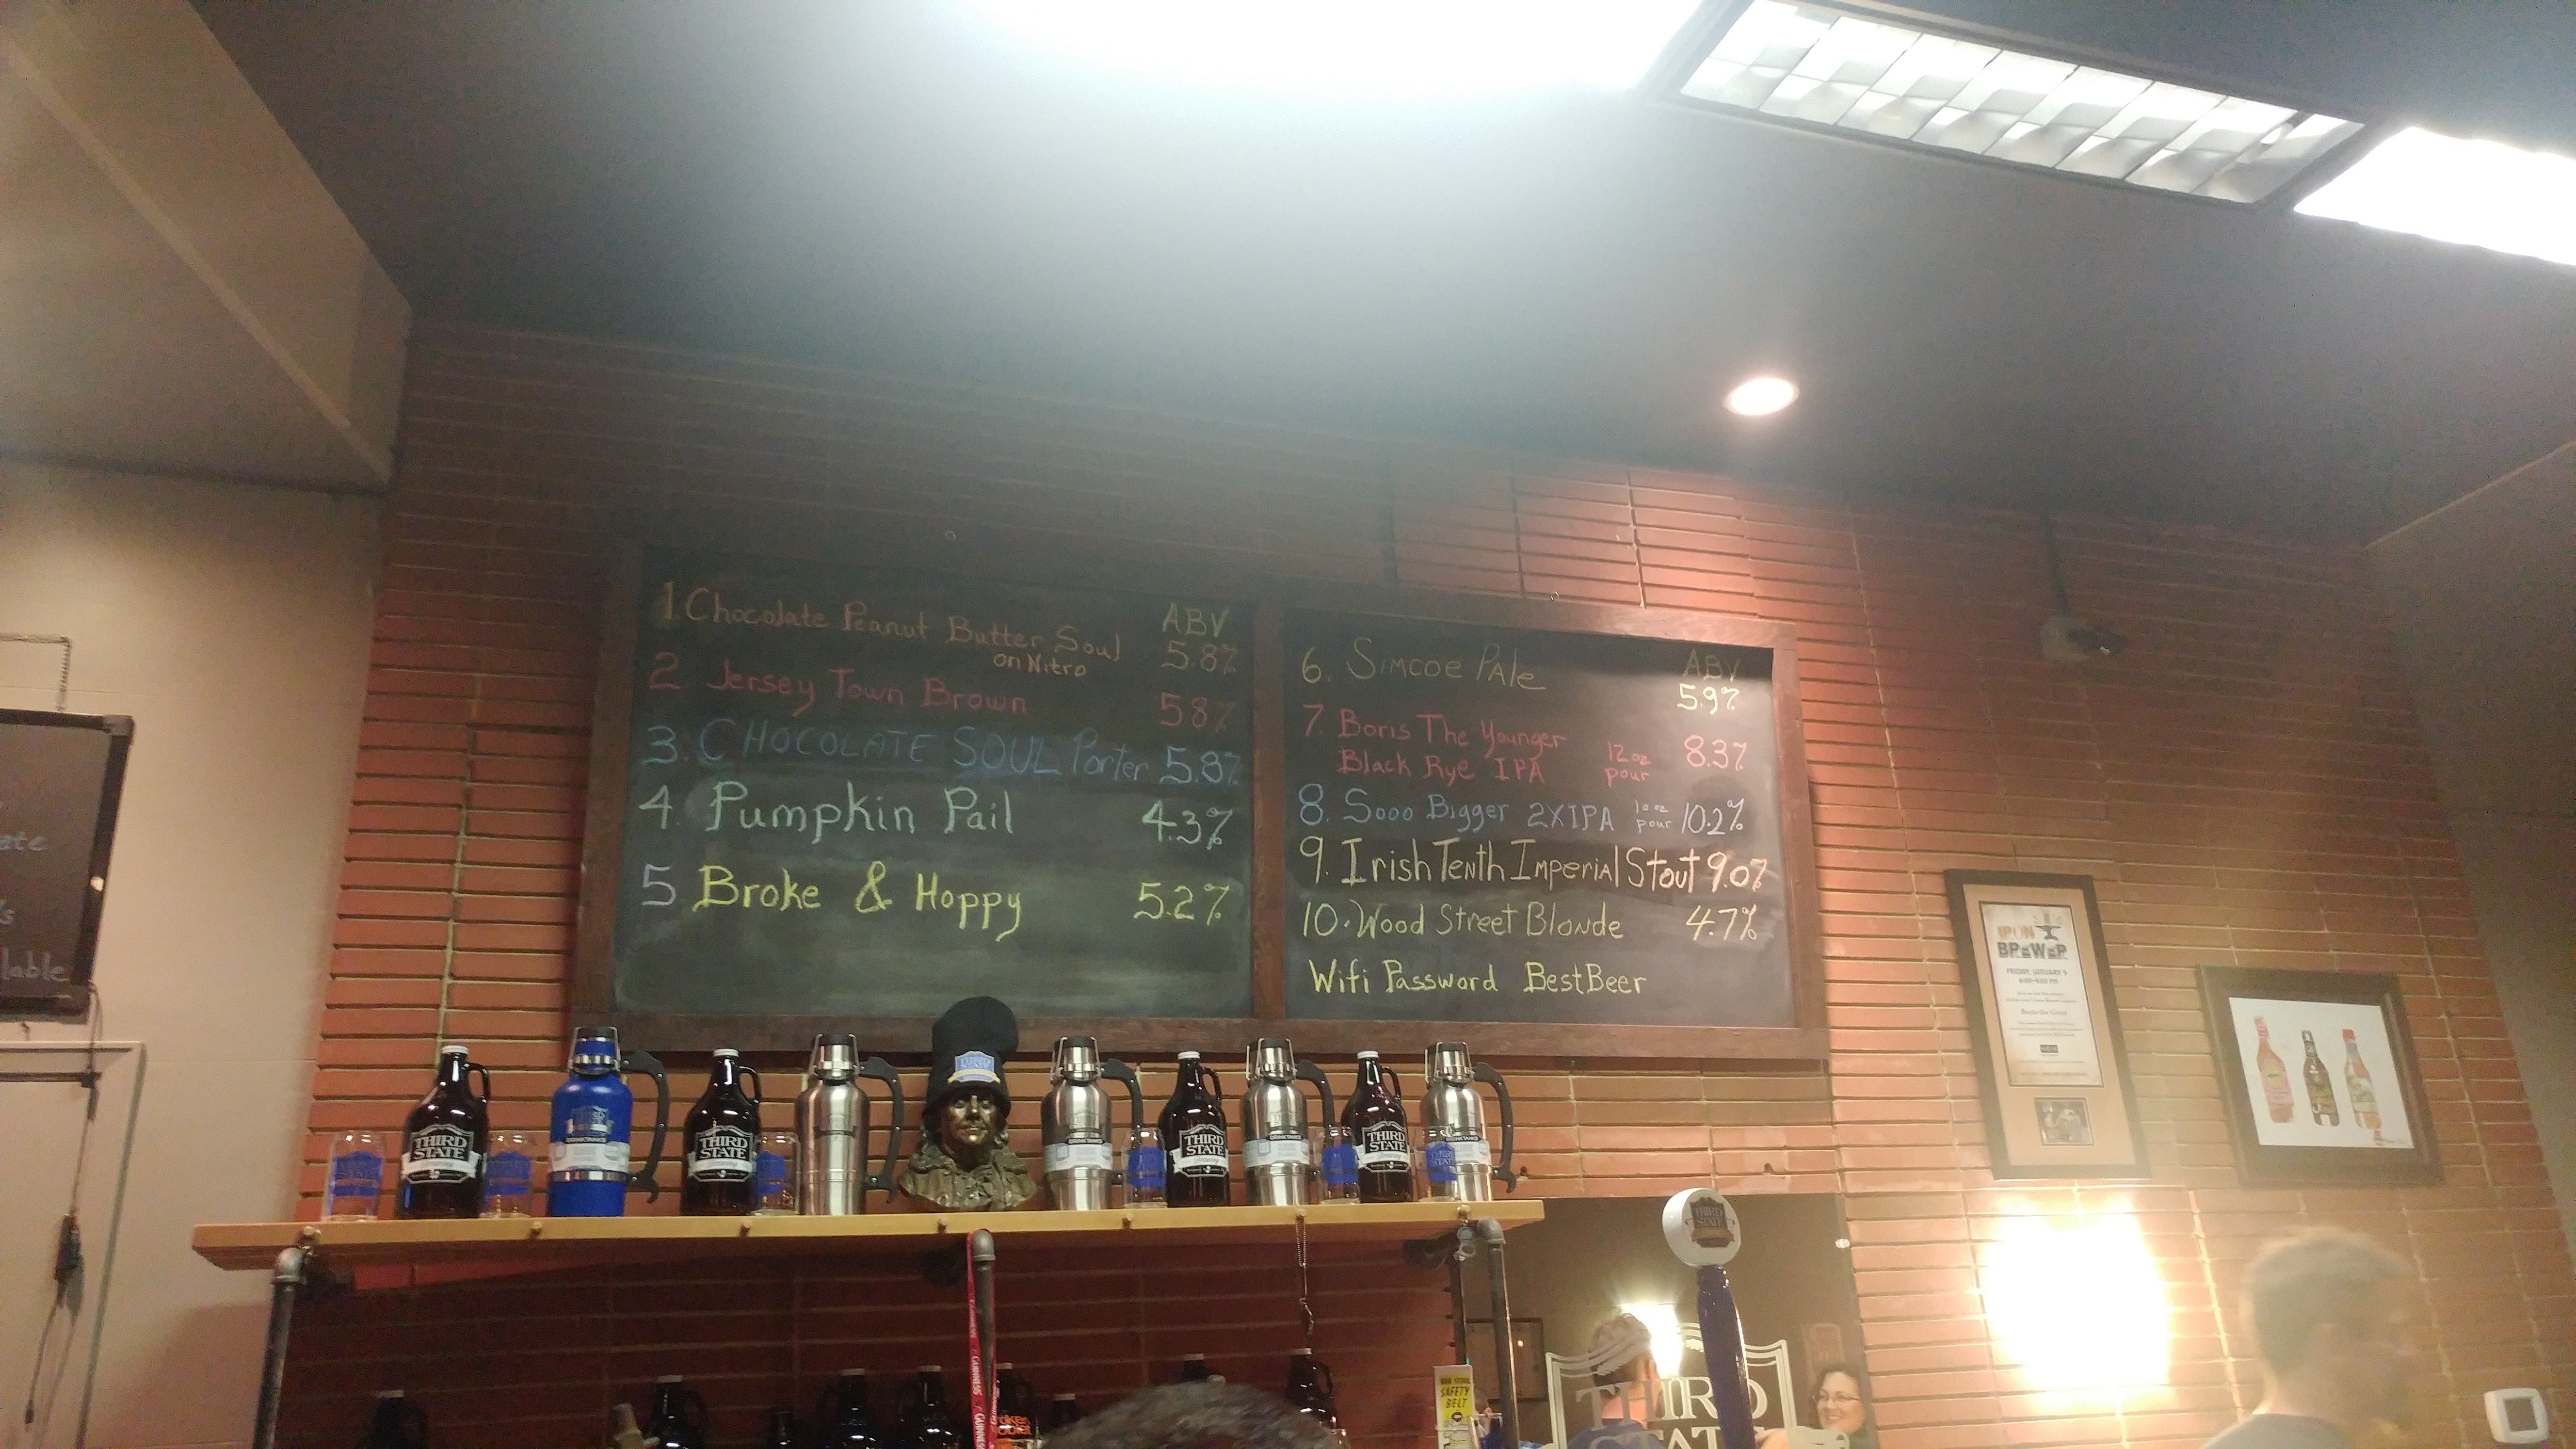 1. Chocolate Peanut Butter Soul
on Nitro
ABV
5.8%
2 Jersey Town Brown 5.8%
3. CHOCOLATE SOUL Porter 5.8%
4. Pumpkin Pail 4.3%
5 Broke & Hoppy 5.2%
6. SIMCOE PALE ABV
5.9%
7. Boris The Younger
Black Rye IPA 12 oz pour 8.3%
8. Sooo Bigger 2XIPA 10 oz pour 10.2%
9. Irish Tenth Imperial Stout 9.0%
10. Wood Street Blonde 4.7%
Wifi Password BestBeer
ate
's
lable
IRON
BREWER
FRIDAY, JANUARY 9
THIRD
STATE
THIRD
STATE
THIRD
STATE
THIRD
STATE
THIRD
STATE
GUINNESS
GUINNESS
SAFETY
BELT
THIRD
STATE